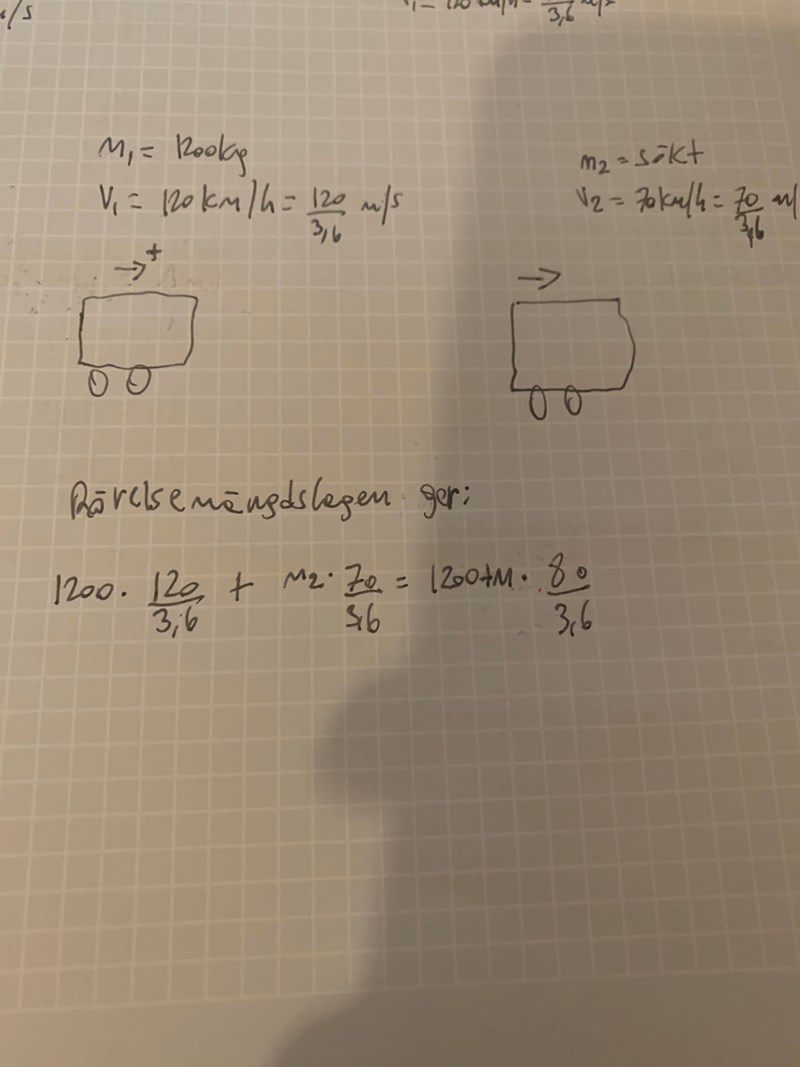 m/s
V₁ = 120 km/h = /3,6 m/s
M₁ = 1200kg
V₁ = 120 km/h = 120/3,6 m/s
m₂ = sökt
V₂ = 70km/h = 70/3,6 m/
→+
→
Rörelsemängdslagen ger:
1200 · 120/3,6 + m₂ · 70/3,6 = 1200+M · 80/3,6